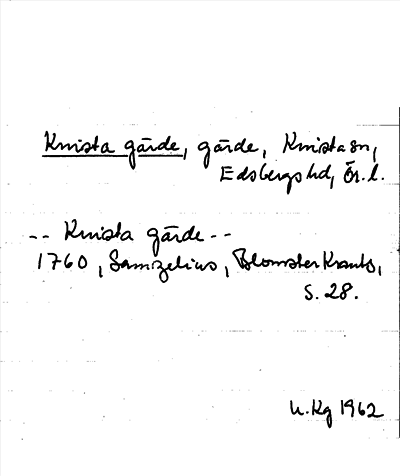 Knista gärde, gärde, Knista sn,
Edsbergs hd, Ör. l.
-- Knista gärde --
1760, Samzelius, Blomster Krants,
S. 28.
U. Kg 1962